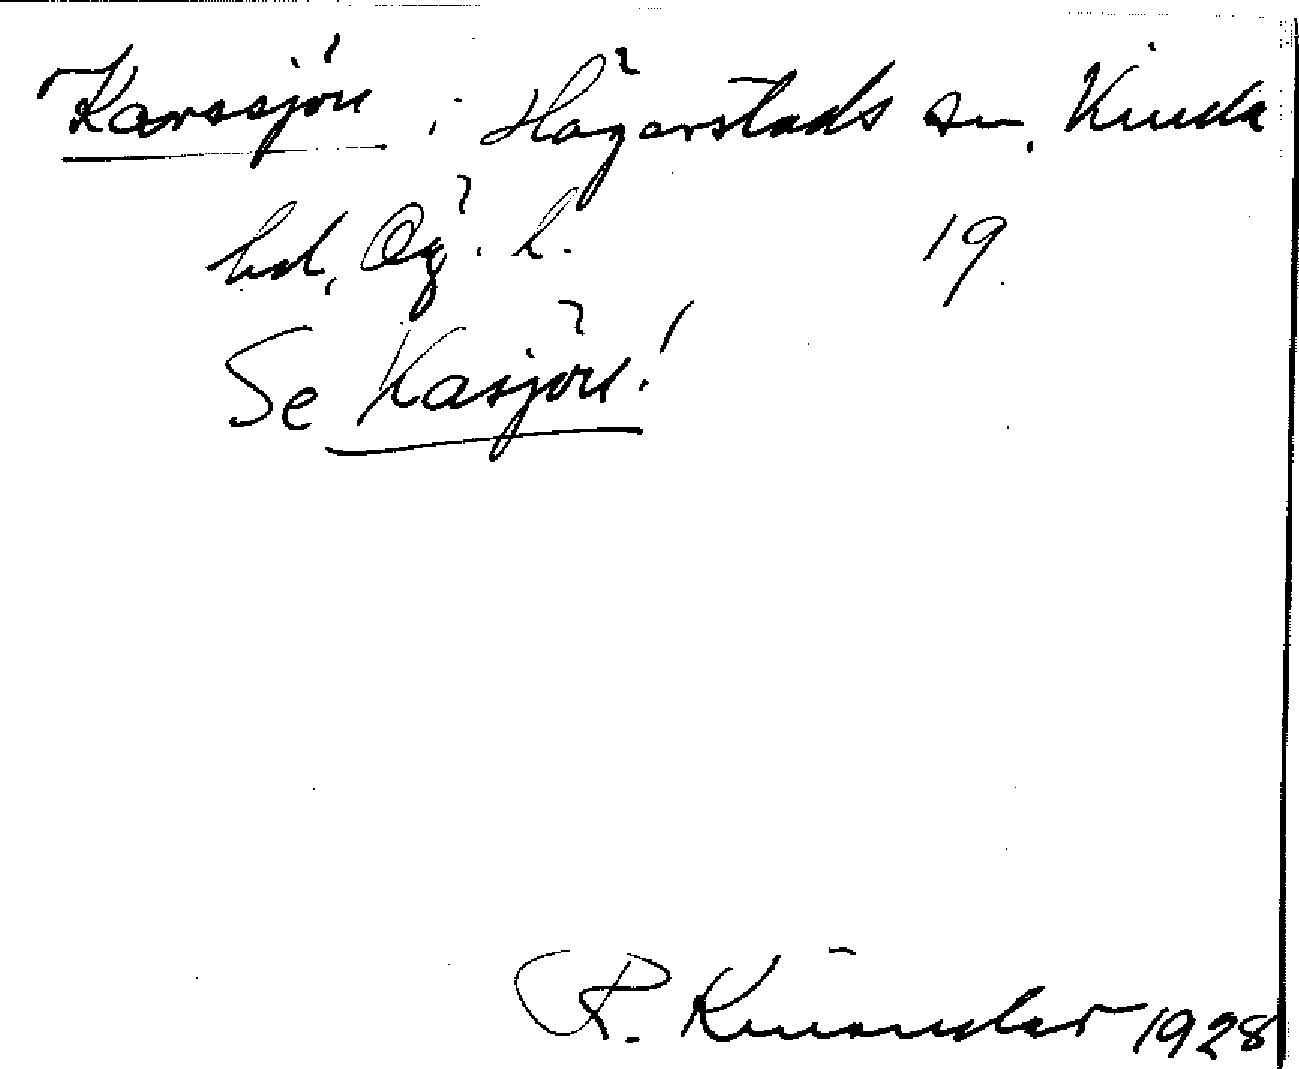 Karssjön i Hägerstads sn, Kinda
hd, Ög. l. 19.
Se Kasjön!
R. Kinander 1928